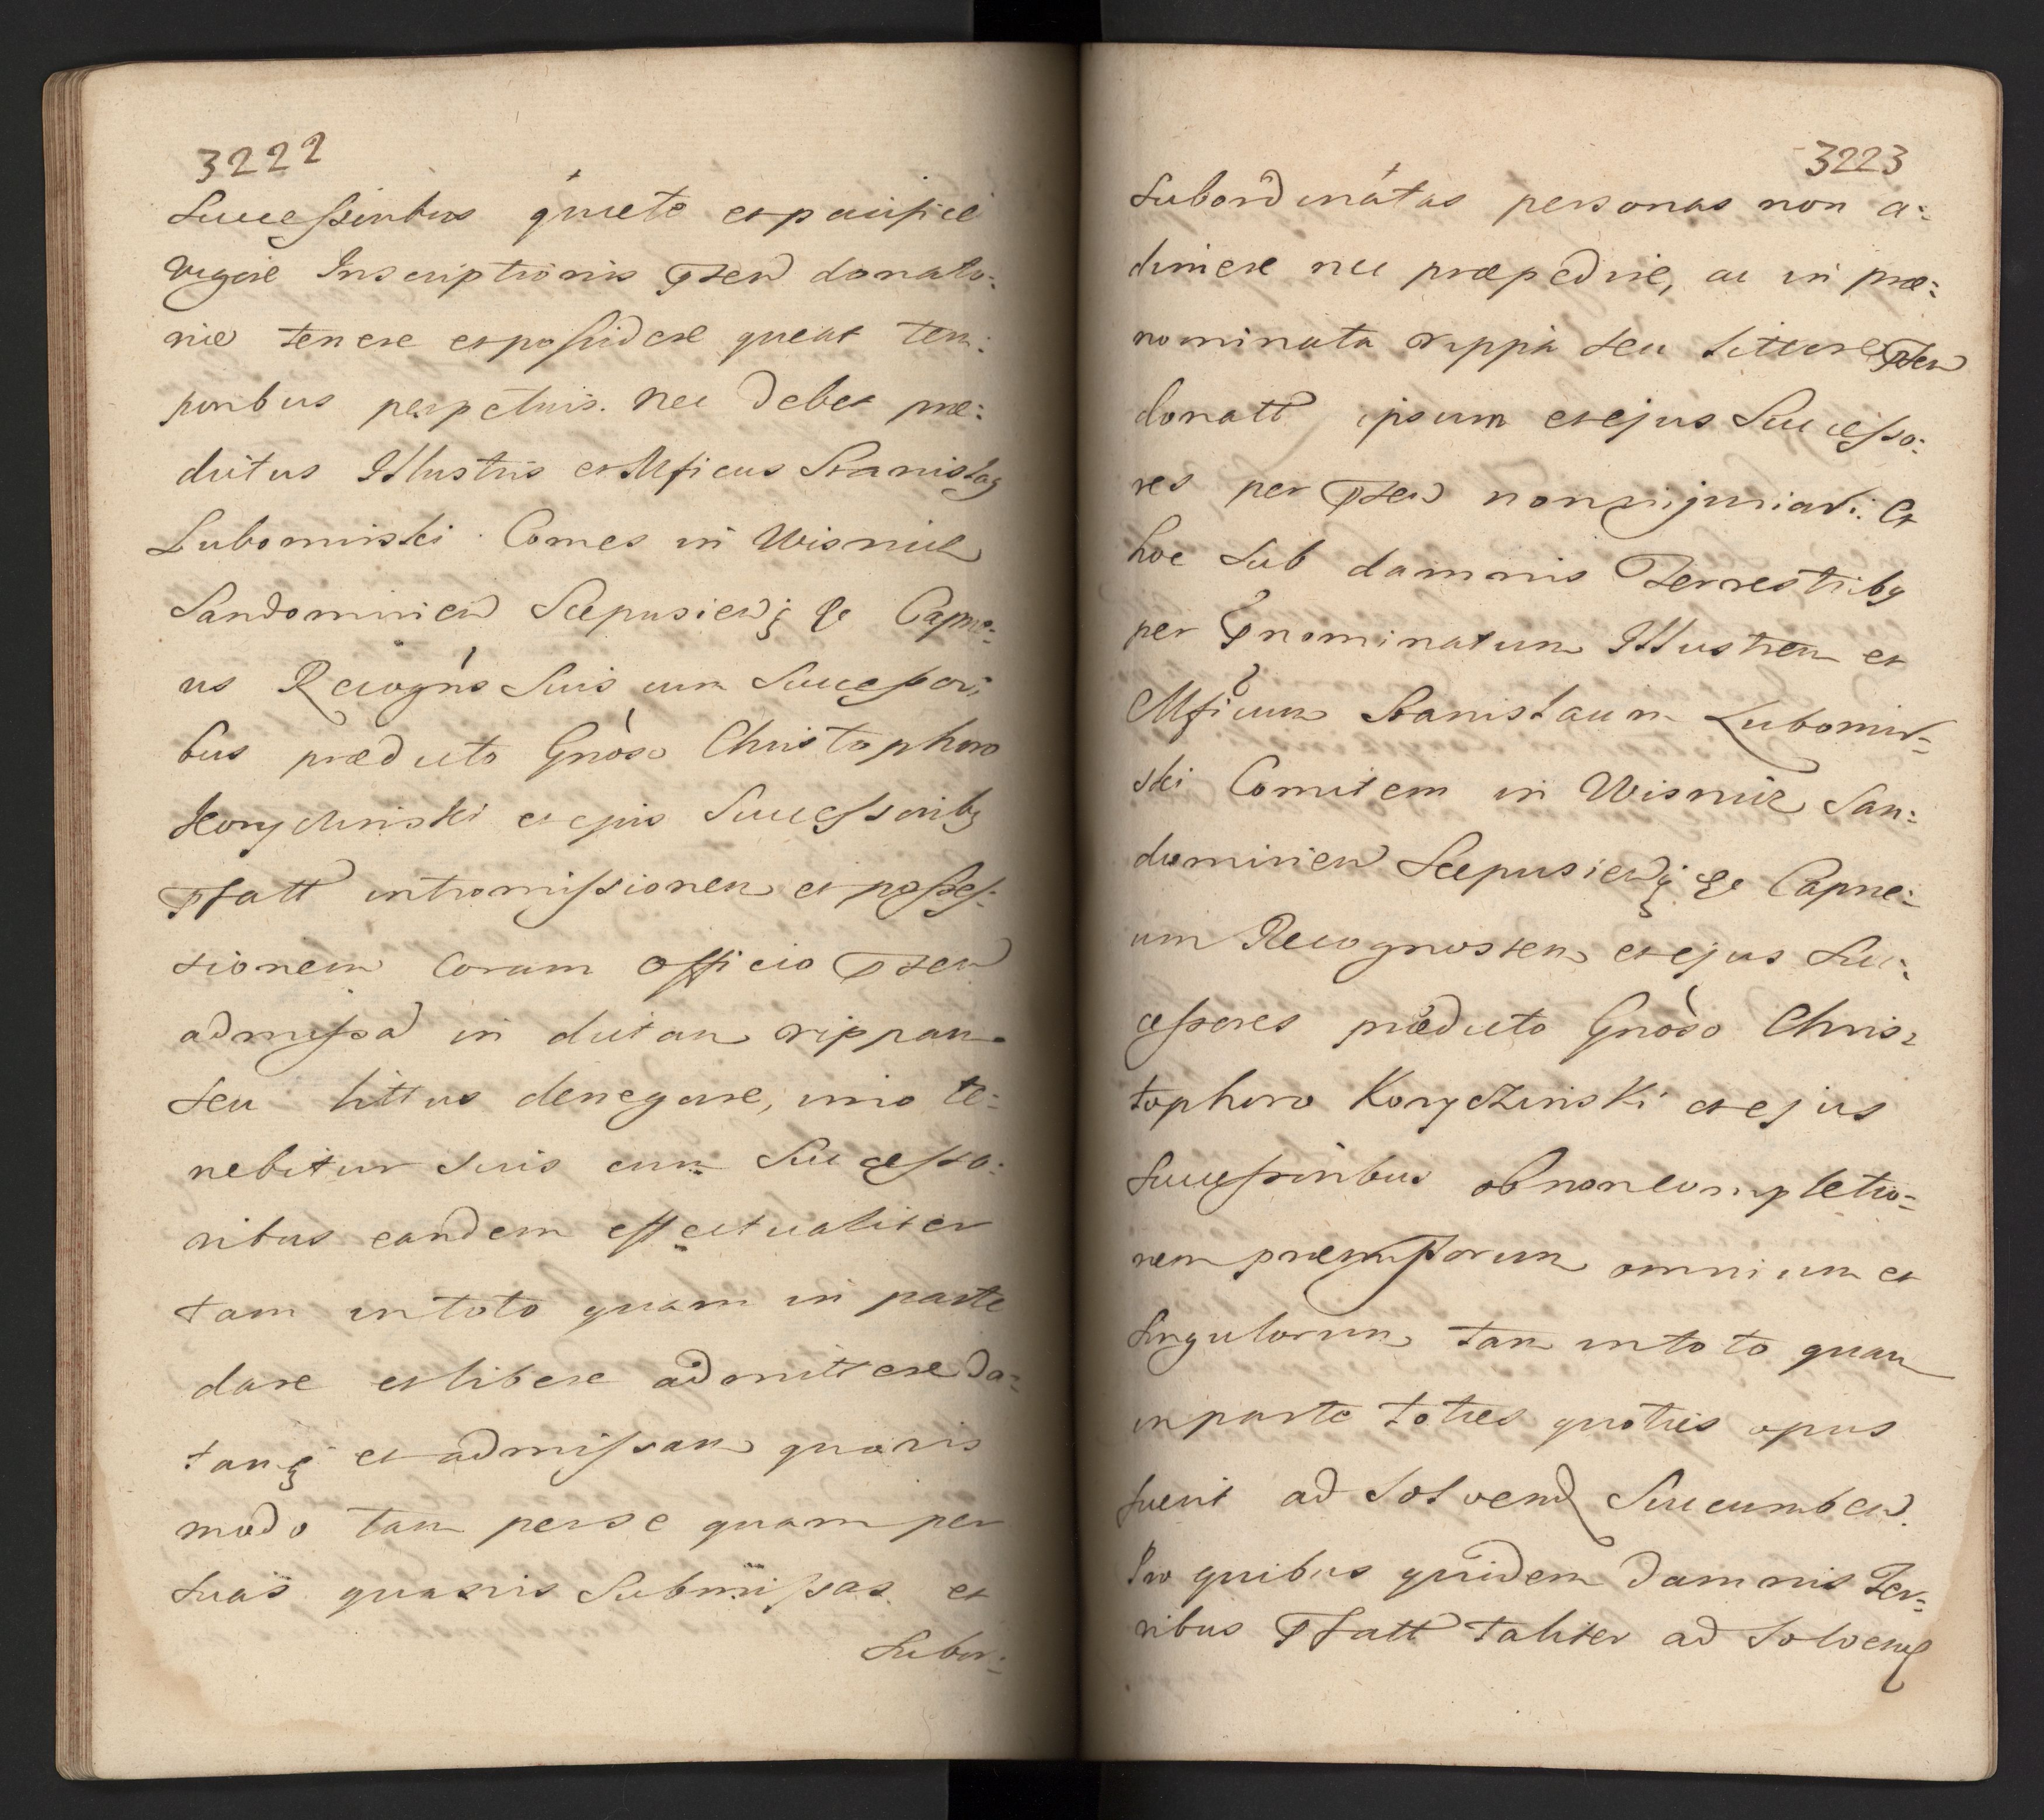 3222
Successoribus quiete et pacifice
vigore Inscriptionis pnten donato:
rie tenere et possidere queat tem:
poribus perpetuis. Nec debet præ:
dictus Illustris et Mficus Stanislaus
Lubomirski Comes in Wisnicz
Sandomirien Scepusienq &c Capne:
us Recogn̄s Suis cum Successori,
bus prædicto Gnoso Christophoro
Koryczinski et ejus Successoribus
pfatt intromissionem et posses:
sionem coram officio pnten
admissa in dictam rippam
seu littus denegare, imo te:
nebitur suis cum Successo:
ribus eandem effectualiter
tam in toto quam in parte
dare et libere admittere da:
tamq et admissam quovis
modo tam per se quam per
suas quasvis Submissas et
Subor:
3223
Subordinatas personas non a:
dimere nec præpedire, ac in præ:
nominata rippa seu littore pnten
donatt ipsum et ejus Successo:
res per pnten non injuriari. Et
hoc Sub damnis Terrestribus
per pnominatum Illustrem et
Mficum Stanislaum Lubomir:
ski Comitem in Wisnicz San:
domirien Scepusienq &c Capne:
um Recognoscen et ejus Suc:
cessores prædicto Gnoso Chris:
tophoro Koryczinski et ejus
Successoribus ob non completio:
nem præmissorum omnium et
singulorum tam in toto quam
in parte toties quoties opus
fuerit ad Solvend Succumben.
Pro quibus quidem damnis Ter:
ribus pfatt taliter ad Solvend